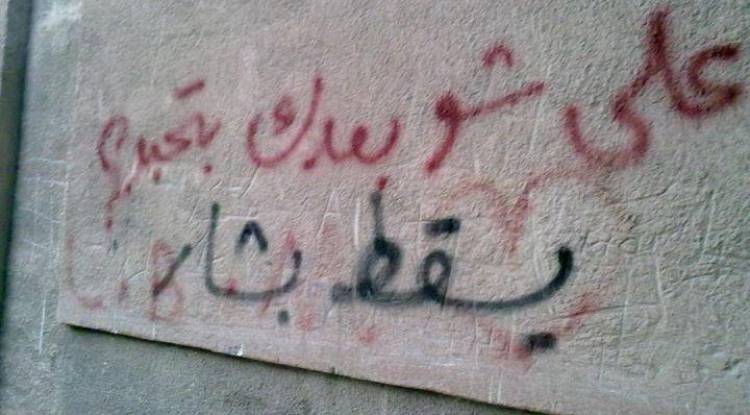 على شو بعدك بتحبه؟
يسقط بشار